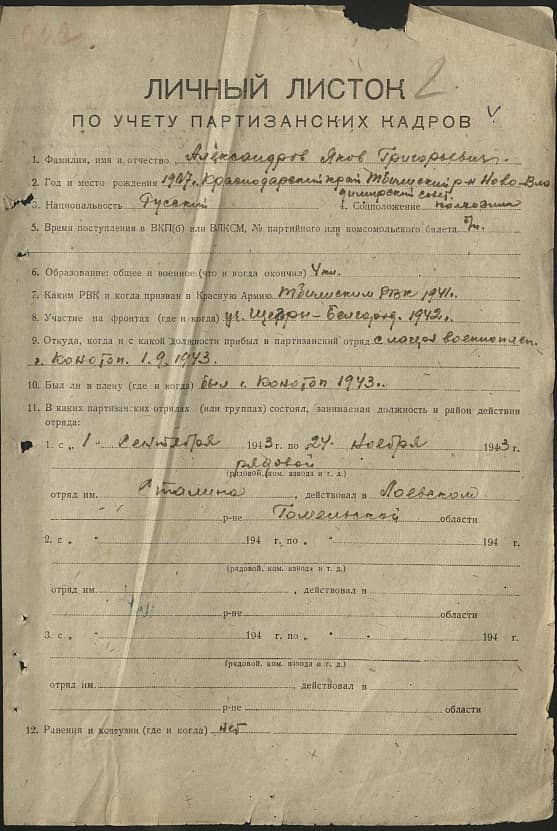 2
ЛИЧНЫЙ ЛИСТОК
ПО УЧЕТУ ПАРТИЗАНСКИХ КАДРОВ
1. Фамилия, имя и отчество Александров Яков Григорьевич.
2. Год и место рождения 1907. Краснодарский край Тбилиский р-н Ново-Вла
димирский совет.
3. Национальность Русский 4. Соцположение колхозник
5. Время поступления в ВКП(б) или ВЛКСМ, № партийного или комсомольского билета б/п.
6. Образование: общее и военное (что и когда окончил) 4 кл.
7. Каким РВК и когда призван в Красную Армию Тбилиским РВК 1941г.
8. Участие на фронтах (где и когда) Белгород. 1942г.
9. Откуда, когда и с какой должности прибыл в партизанский отряд с лагеря военнопл.
г. Конотоп. 1.9.1943.
10. Был ли в плену (где и когда) был г. Конотоп 1943г.
11. В каких партизанских отрядах (или группах) состоял, занимаемая должность и район действия
отряда:
1. с „ 1 " Сентября 1943 г. по 24 " Ноября 1943 г.
рядовой
(рядовой, ком. взвода и т. д.)
отряд им. Сталина, действовал в Лоевском
р-не Гомельской области
2. с „ " 194 г. по „ " 194 г.
(рядовой, ком. взвода и т. д.)
отряд им. , действовал в
р-не области
3. с „ " 194 г. по „ " 194 г.
(рядовой, ком. взвода и т. д.)
отряд им. , действовал в
р-не области
12. Ранения и контузии (где и когда) нет